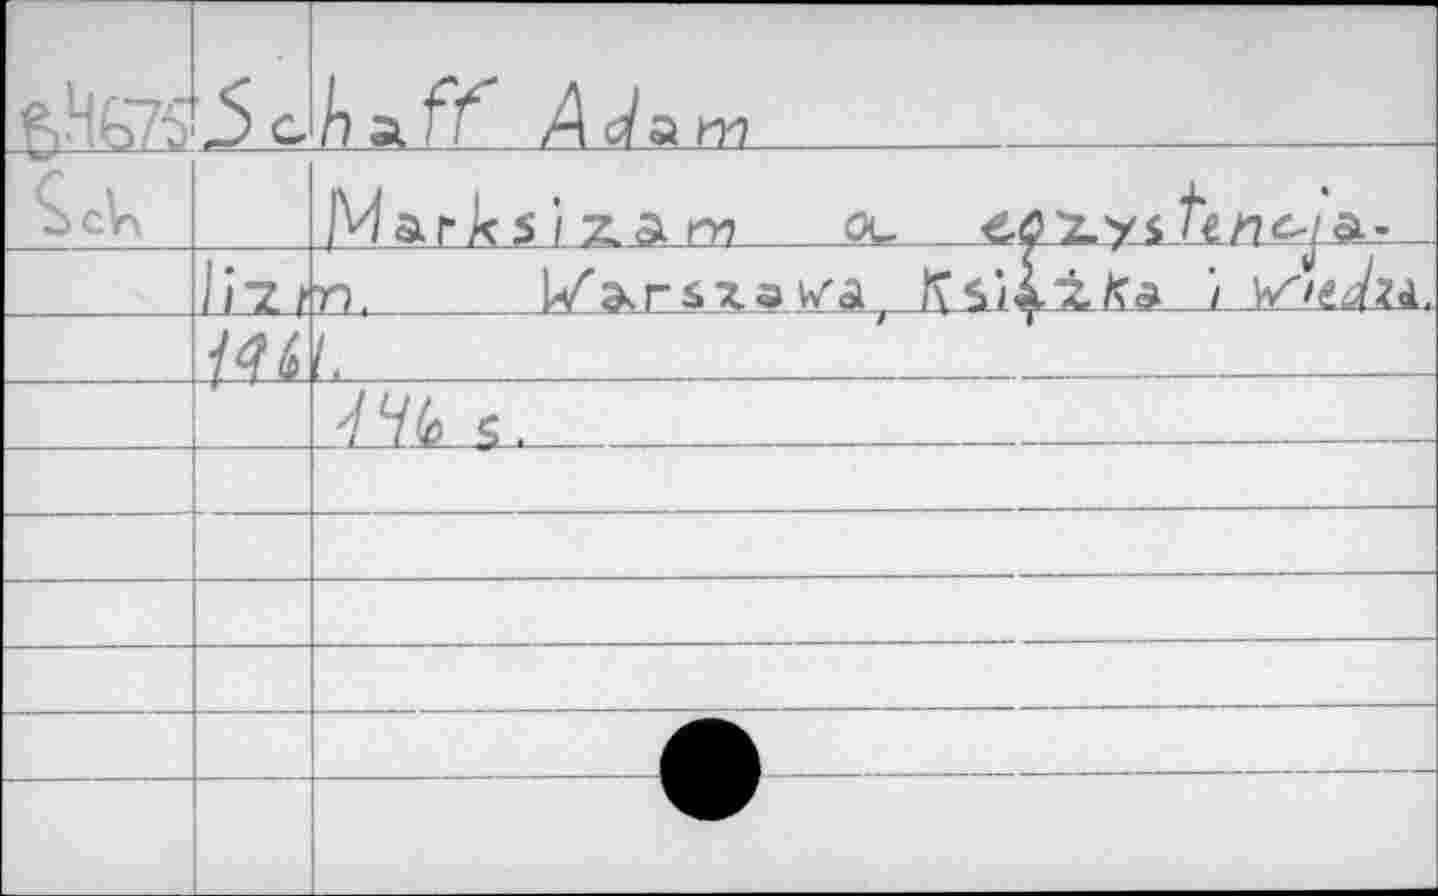 B.4675 Schaff Adam
Sch Marksizam a egzystencja-
lizm. Warszawa, Książka i Wiedza.
1961.
146 s.